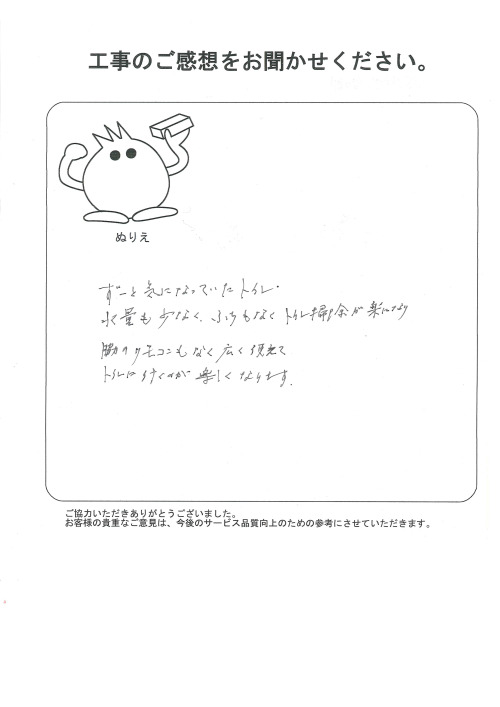 工事のご感想をお聞かせください。
ぬりえ
ずーと気になっていたトイレ。
水量も少なく、ふちもなくトイレ掃除が楽になり
脇のリモコンもなく広く使えて
トイレに行くのが楽しくなります。
ご協力いただきありがとうございました。
お客様の貴重なご意見は、今後のサービス品質向上のための参考にさせていただきます。